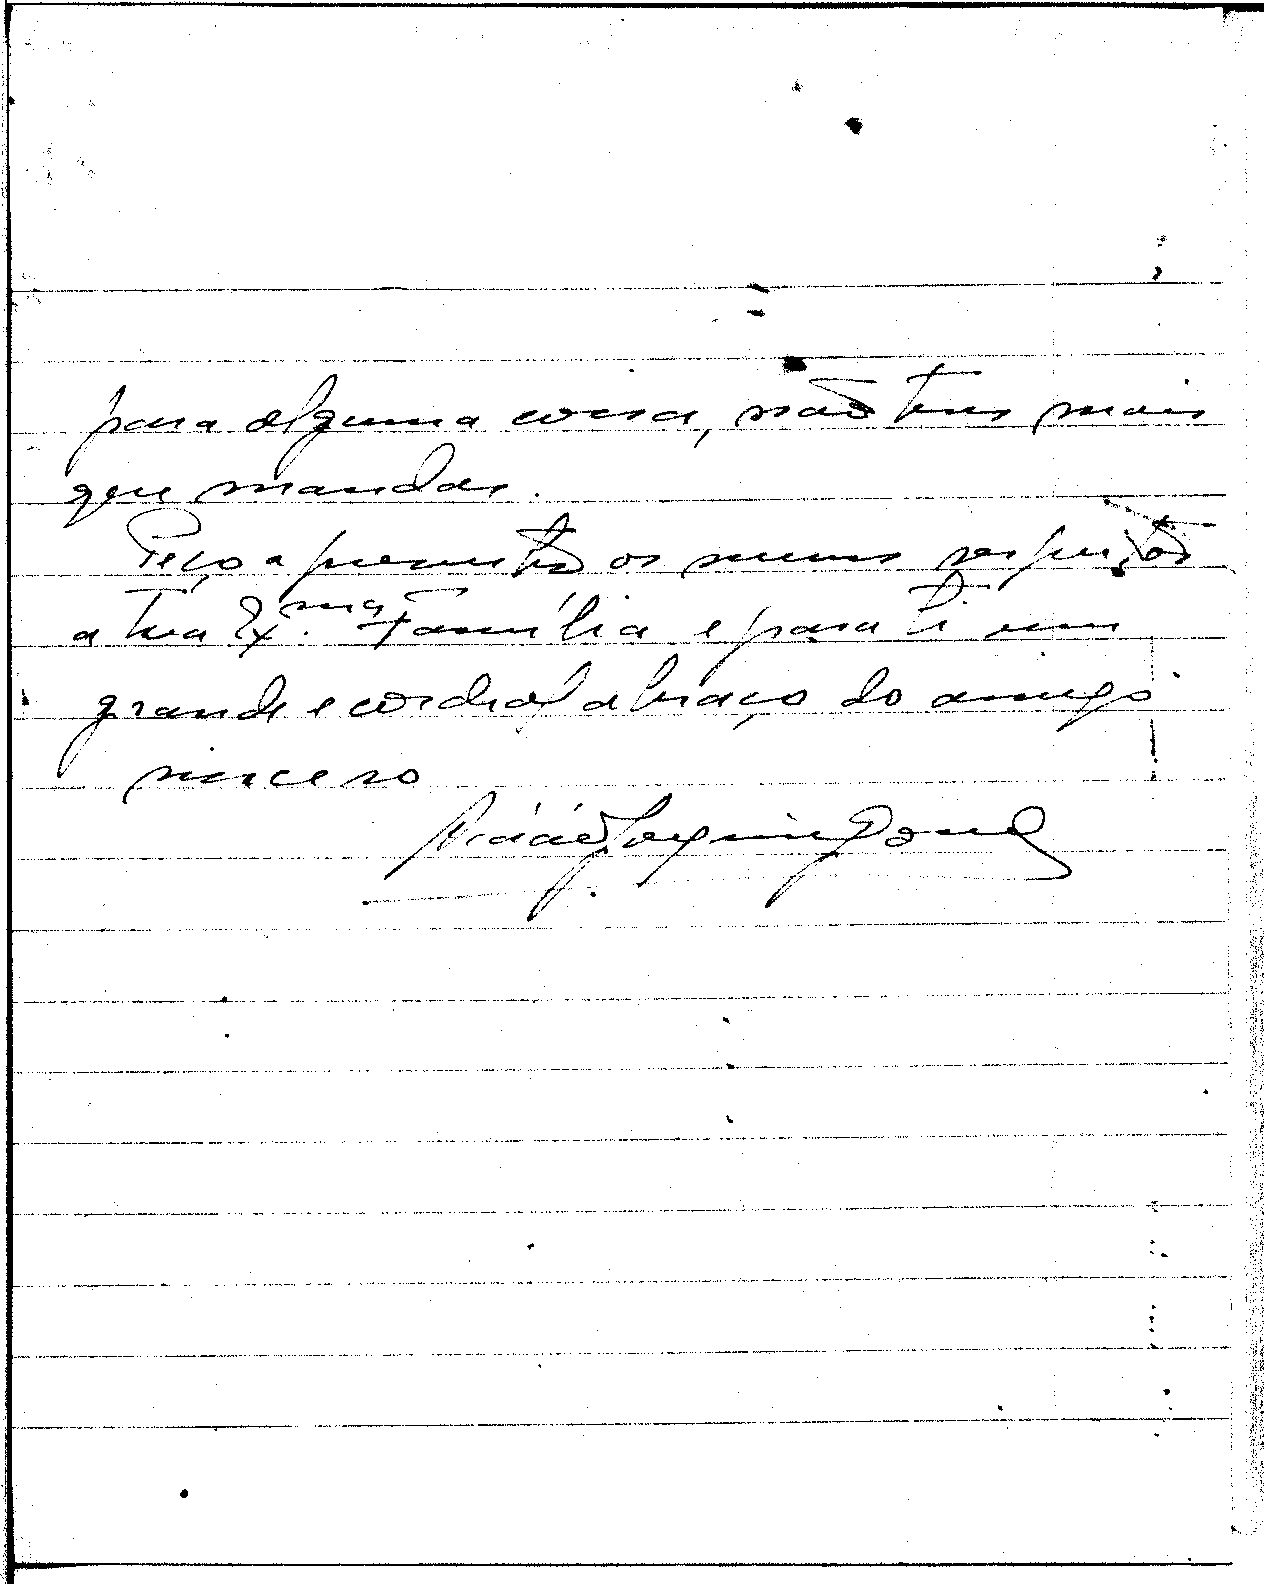 para alguma coisa, não tens mais
que mandar.
Peço apresentes os meus respeitos
a tua Ex.ma Família e para ti um
grande e cordial abraço do amigo
sincero
Acácio Joaquim